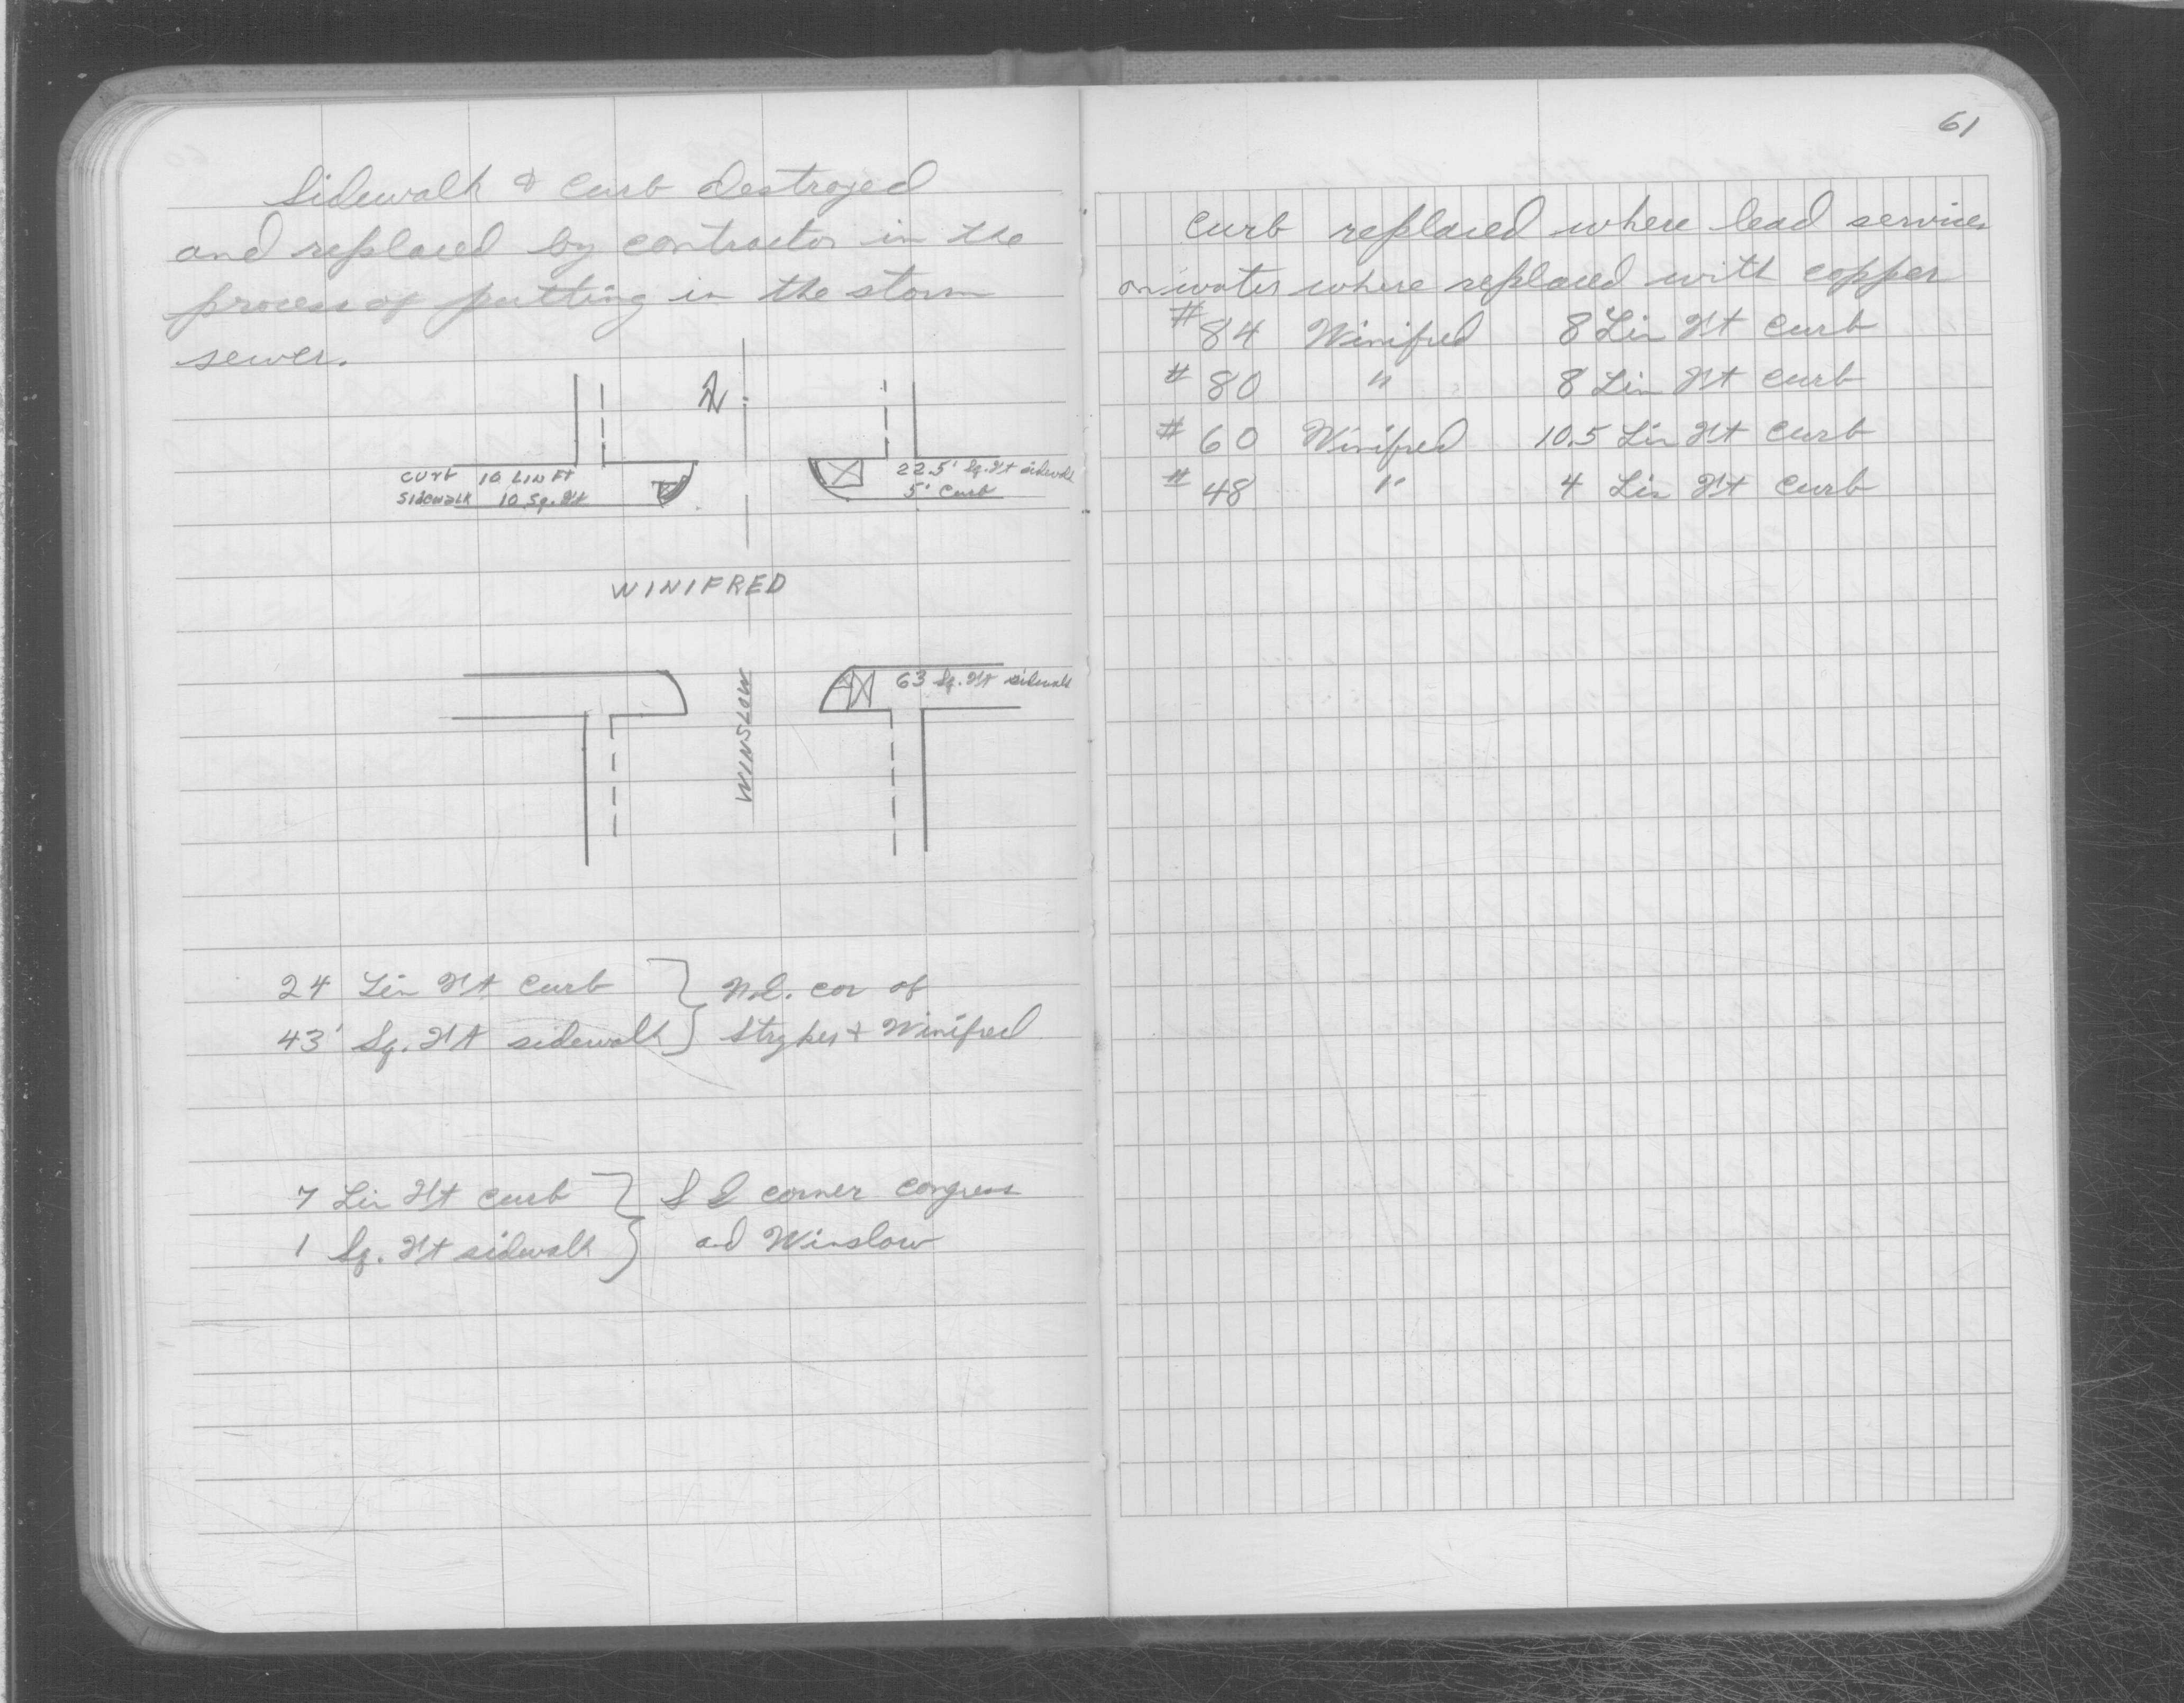 Sidewalk & Curb destroyed
and replaced by contractor in the
process of putting in the storm
sewer.
N
CURB 10 LIN FT
SIDEWALK 10 Sq. Ft
22.5' Sq. Ft sidewalk
5' Curb
WINIFRED
WINSLOW
63 Sq. Ft sidewalk
24 Lin Ft Curb
N.E. cor of
43' Sq. Ft sidewalk
Stryker & Winifred
7 Lin Ft Curb
S E corner Congress
1 Sq. Ft sidewalk
and Winslow
61
Curb replaced where lead services
on water where replaced with copper
# 84 Winifred 8 Lin Ft Curb
# 80 " 8 Lin Ft Curb
# 60 Winifred 10.5 Lin Ft Curb
# 48 " 4 Lin Ft Curb